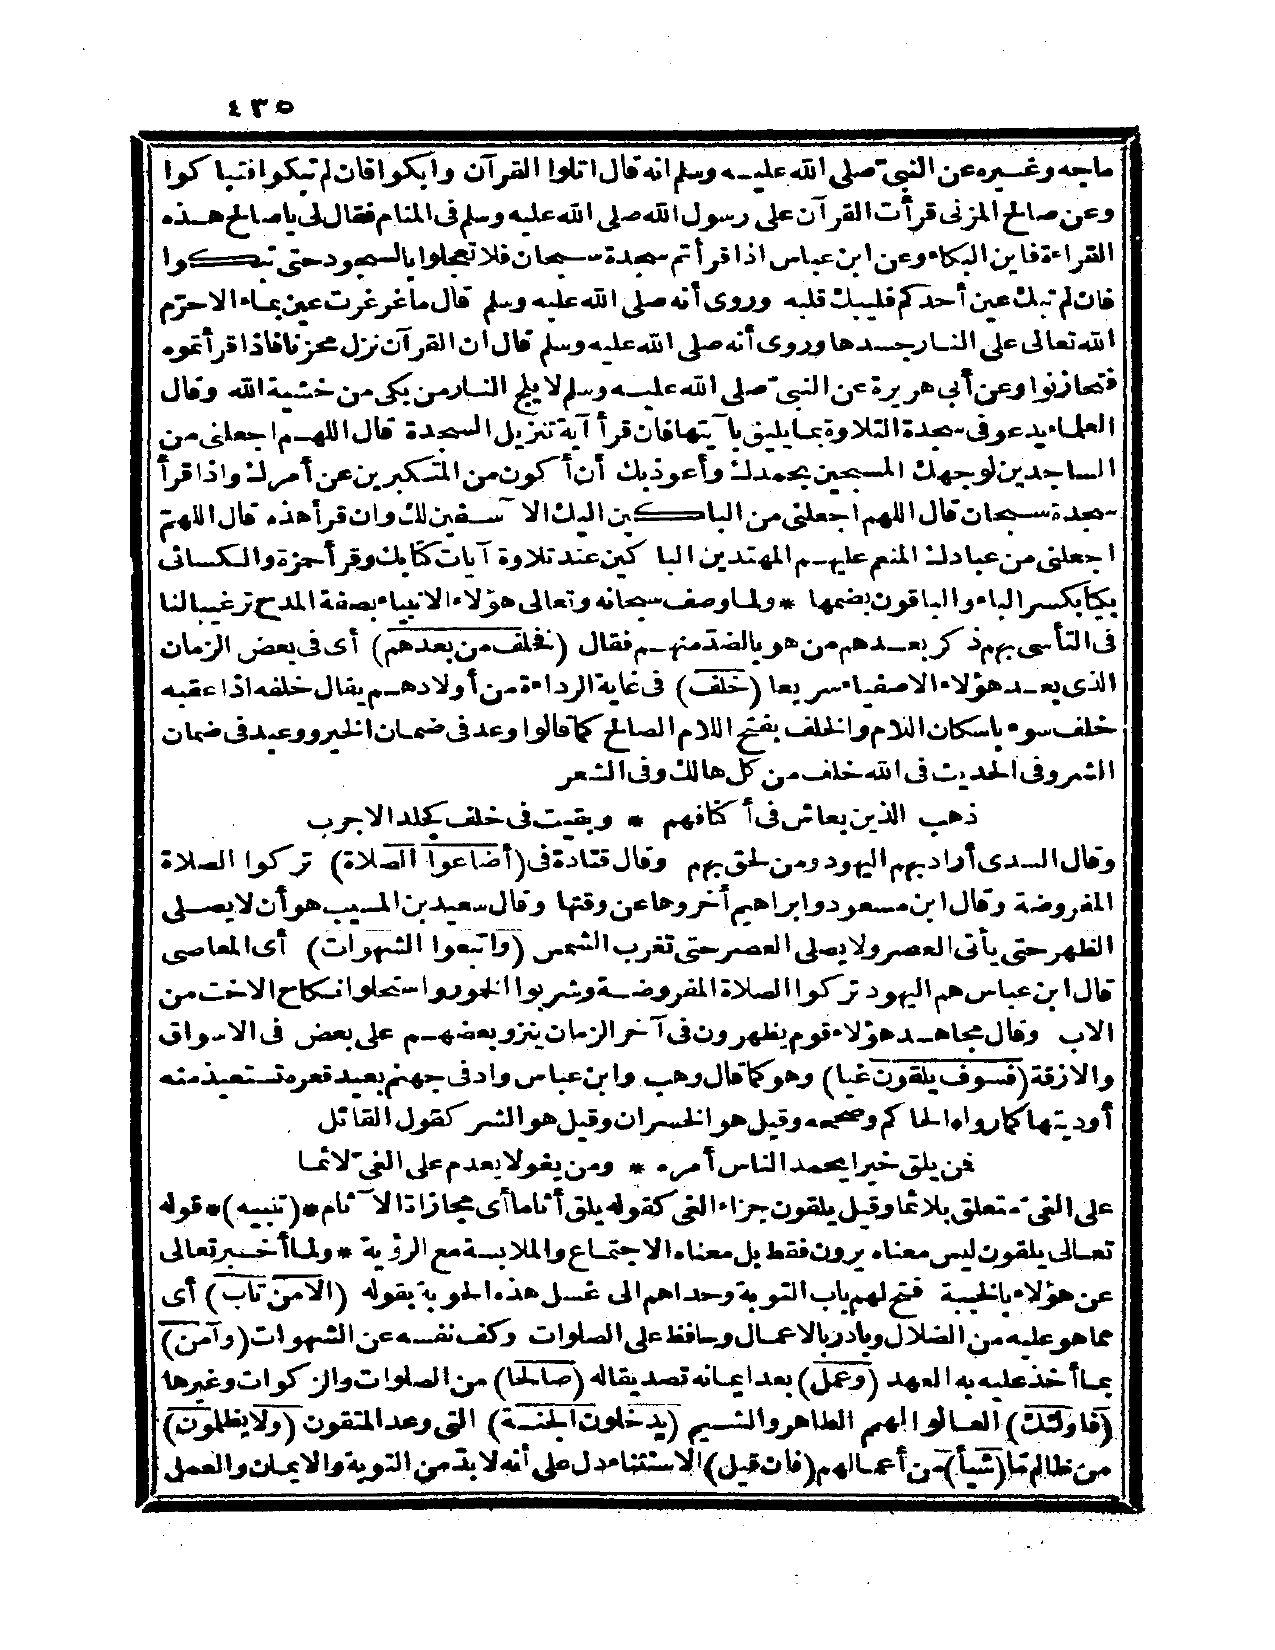 ٤٣٥
ماجه وغيره عن النبي صلى الله عليه وسلم انه قال اتلوا القرآن وابكوا فان لم تبكوا فتباكوا
وعن صالح المزنى قرأت القرآن على رسول الله صلى الله عليه وسلم فى المنام فقال لى ياصالح هذه
القراءة فاين البكاء وعن ابن عباس اذا قرأتم سجدة سبحان فلا تعجلوا بالسجود حتى تبكوا
فان لم تبك عين أحدكم فليبك قلبه وروى أنه صلى الله عليه وسلم قال ماغرغرت عين بماء الاحرّم
الله تعالى على النار جسدها وروى أنه صلى الله عليه وسلم قال ان القرآن نزل بحزن فاذا قرأتموه
فتحازنوا وعن أبى هريرة عن النبىّ صلى الله عليه وسلم لايلج النار من بكى من خشية الله وقال
العلماء يدعو فى سجدة التلاوة بمايليق بآيتها فان قرأ آية تنزيل السجدة قال اللهم اجعلنى من
الساجدين لوجهك المسبحين بحمدك وأعوذ بك أن أكون من المتكبرين عن أمرك واذا قرأ
سجدة سبحان قال اللهم اجعلنى من الباكين اليك الاسفين لك وان قرأ هذه قال اللهمّ
اجعلنى من عبادك المنعم عليهم المهتدين الباكين عند تلاوة آيات كتابك وقرأ حمزة والكسائى
بكا بكسر الباء والباقون بضمها * ولما وصف سبحانه وتعالى هؤلاء الانبياء بصفة المدح ترغيبا لنا
فى التأسى بهم ذكر بعدهم من هو بالضدّ منهم فقال (فخلف من بعدهم) أى فى بعض الزمان
الذى بعد هؤلاء الاصفياء سريعا (خلف) فى غاية الرداءة من أولادهم يقال خلفه اذا عقبه
خلف سوء باسكان اللام والخلف بفتح اللام الصالح كما قالوا وعد فى ضمان الخير ووعيد فى ضمان
الشر وفى الحديث فى الله خلف من كل هالك وفى الشعر
ذهب الذين يعاش فى أكنافهم * وبقيت فى خلف كجلد الاجرب
وقال السدى أراد بهم اليهود ومن لحق بهم وقال قتادة فى (أضاعوا الصلاة) تركوا الصلاة
المفروضة وقال ابن مسعود وابراهيم أخروها عن وقتها وقال سعيد بن المسيب هو أن لايصلى
الظهر حتى يأتى العصر ولا يصلى العصر حتى تغرب الشمس (واتبعوا الشهوات) أى المعاصى
قال ابن عباس هم اليهود تركوا الصلاة المفروضة وشربوا الخور واستحلوا نكاح الاخت من
الاب وقال مجاهد هؤلاء قوم يظهرون فى آخر الزمان ينزو بعضهم على بعض فى الاسواق
والازقة (فسوف يلقون غيا) وهو كما قال وهب وابن عباس واد فى جهنم بعيد قعره تستعيذ منه
أوديتها كما رواه الحاكم وصححه وقيل هو الخسران وقيل هو الشر كقول القائل
فمن يلق خيرا يحمد الناس أمره * ومن يغو لا يعدم على الغىّ لائما
على الغىّ متعلق بلائما وقيل يلقون جزاء الغى كقوله يلق أثاما أى مجازاة الآثام * (تنبيه) * قوله
تعالى يلقون ليس معناه يرون فقط بل معناه الاجتماع والملابسة مع الرؤية * ولما أخبر تعالى
عن هؤلاء بالخيبة فتح لهم باب التوبة وحداهم الى غسل هذه الحوبة بقوله (الا من تاب) أى
مما هو عليه من الضلال وبادر بالاعمال وحافظ على الصلوات وكف نفسه عن الشهوات (وآمن)
بما أخذ عليه به العهد (وعمل) بعد ايمانه تصديقا له (صالحا) من الصلوات والزكوات وغيرها
(فاولئك) العالو الهمم الطاهرو الشيم (يدخلون الجنة) التى وعد المتقون (ولا يظلمون)
من ظالم مّا (شيأ) من أعمالهم (فان قيل) الاستثناء دل على أنه لا بدّ من التوبة والايمان والعمل